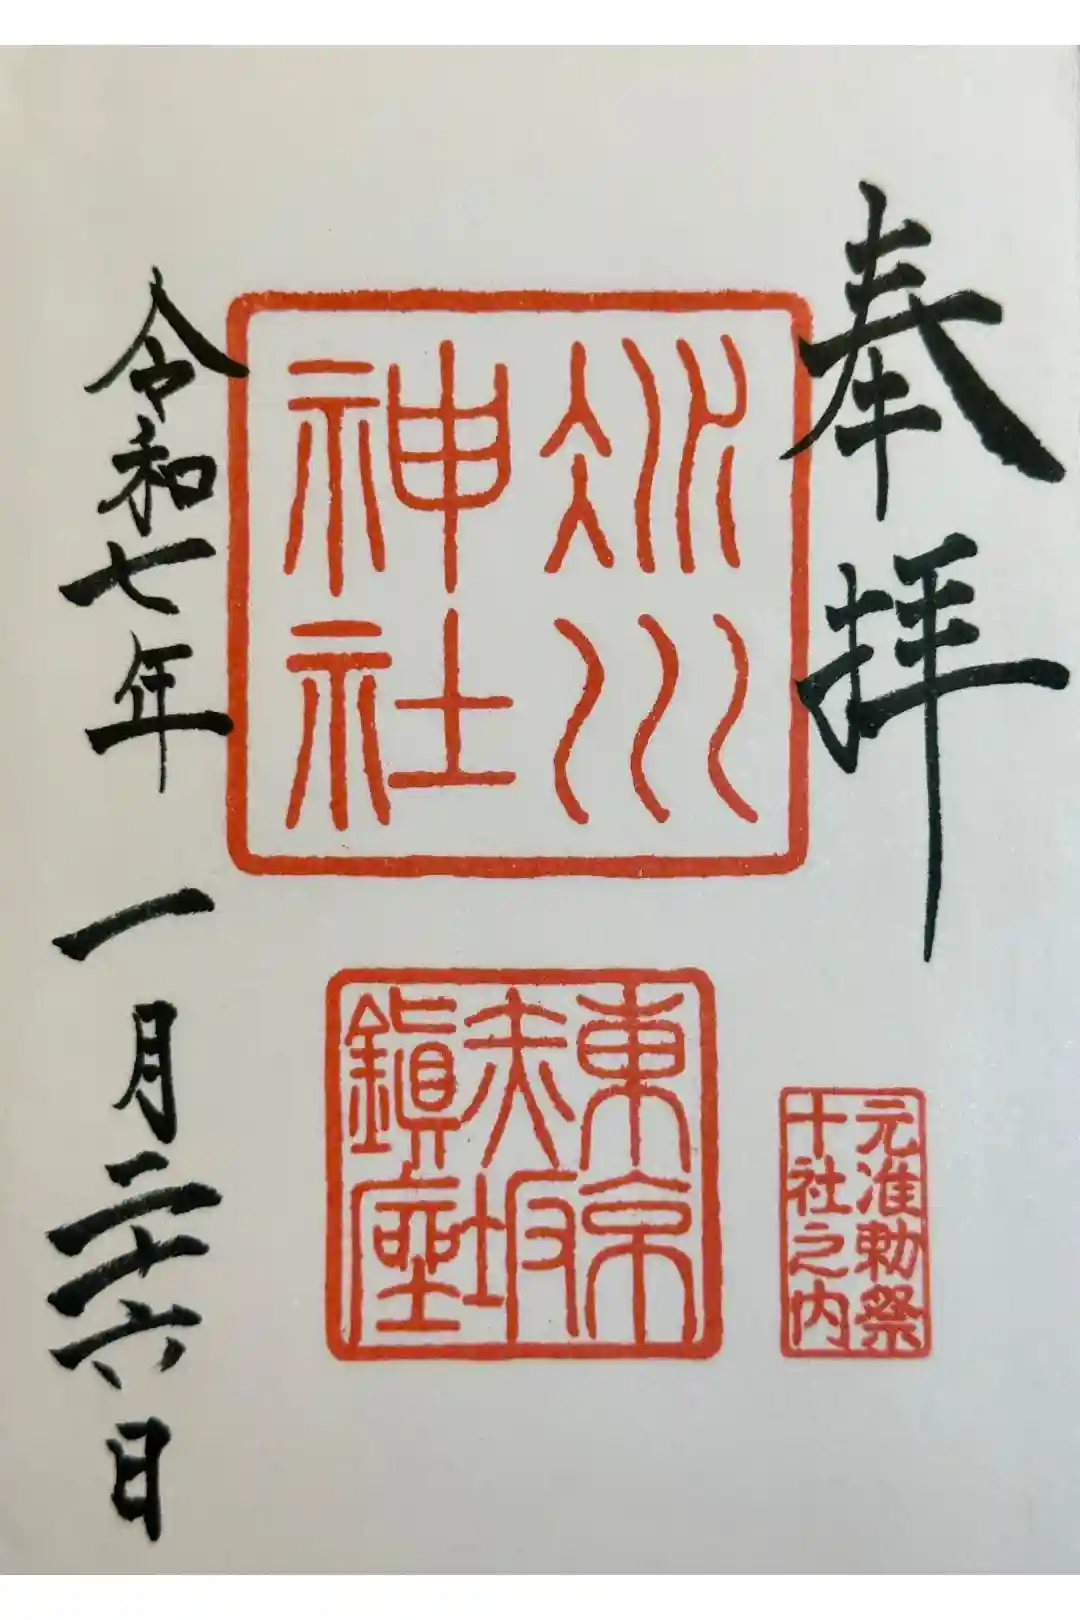 奉拝
元准勅祭
十社之内
冰川
神社
東京
赤坂
鎭座
令和七年一月二十六日